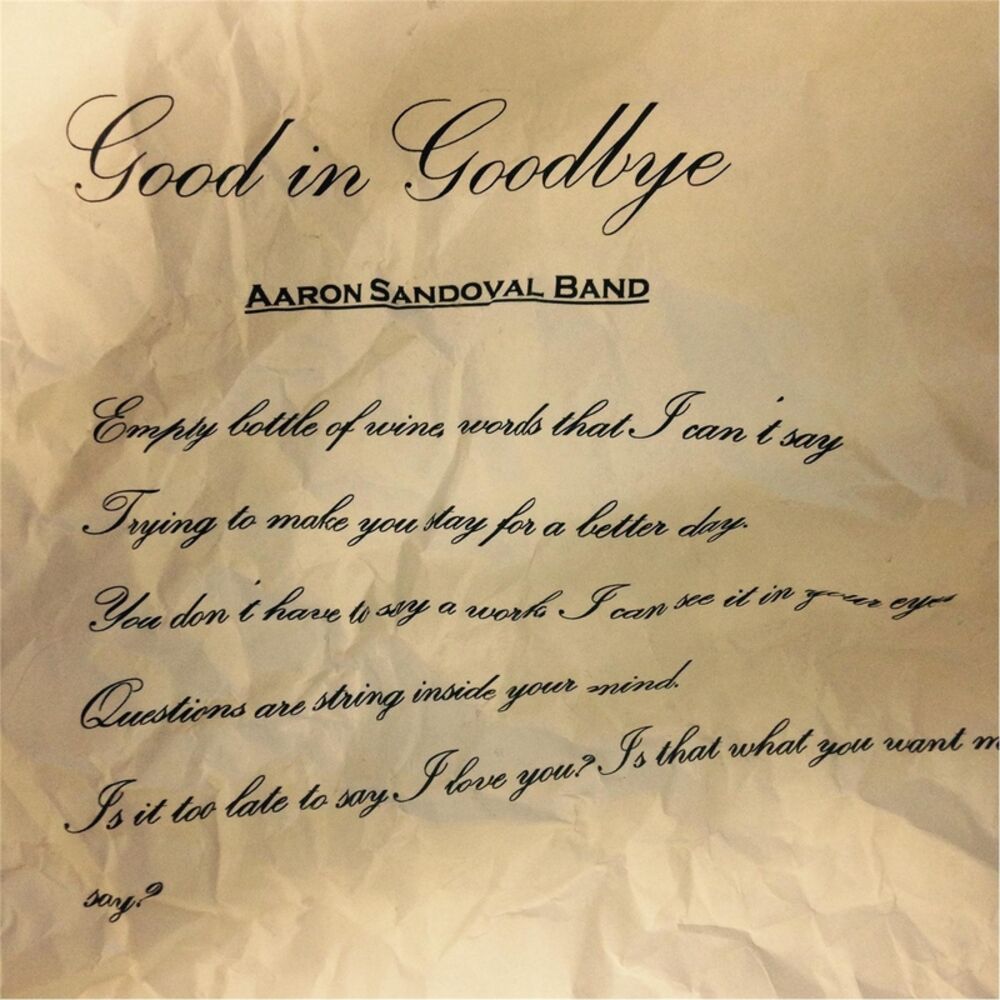 Good in Goodbye
AARON SANDOVAL BAND
Empty bottle of wine, words that I can't say
Trying to make you stay for a better day.
You don't have to say a work I can see it in your eyes
Questions are string inside your mind.
Is it too late to say I love you? Is that what you want m
say?